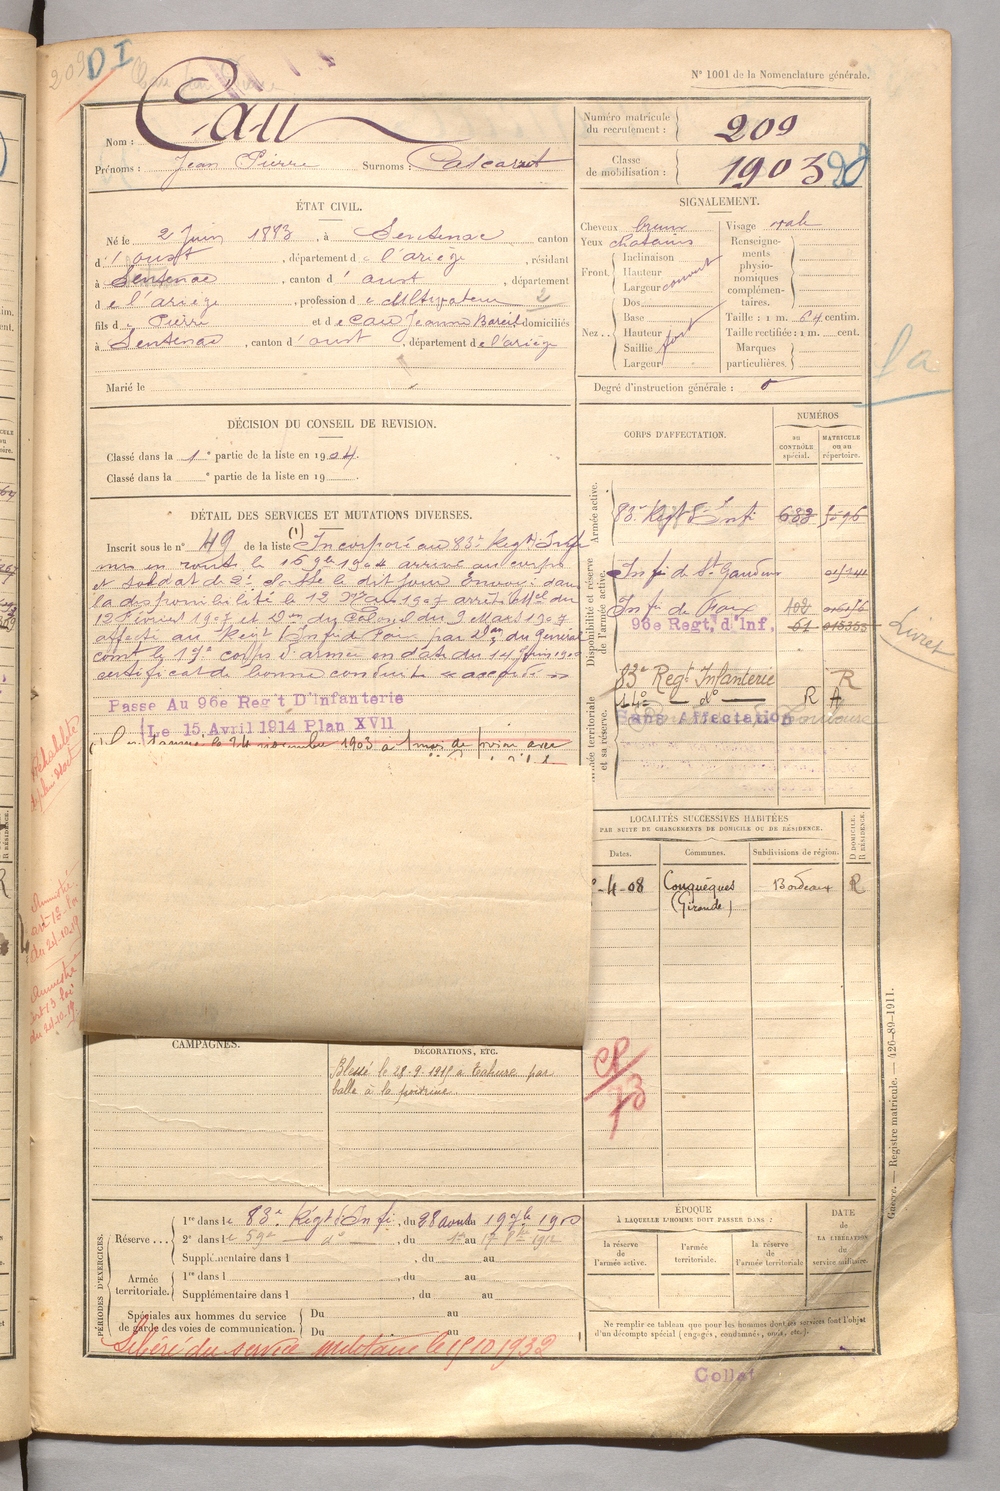 209
DI
N° 1001 de la Nomenclature générale.
Nom : Cau
Prénoms : Jean Pierre Surnoms :
Numéro matricule du recrutement : 209
Classe de mobilisation : 1903
ÉTAT CIVIL.
Né le 2 Juin 1883, à Sentenac canton
d'oust, département de l'ariège, résidant
à Sentenac, canton d'oust, département
de l'ariège, profession de Cultivateur 2
fils de Pierre et de Cau Jeanne domiciliés
à Sentenac, canton d'oust, département de l'ariège
Marié le
SIGNALEMENT.
Cheveux bruns Visage ovale
Yeux chatains
Renseignements physionomiques complémentaires.
Front. Inclinaison
Hauteur
Largeur couvert
Nez.. Dos
Base
Hauteur
Saillie fort
Largeur
Taille : 1 m. 64 centim.
Taille rectifiée : 1 m. cent.
Marques particulières.
Degré d'instruction générale : 0
DÉCISION DU CONSEIL DE REVISION.
Classé dans la 1e partie de la liste en 1904.
Classé dans la e partie de la liste en 19
CORPS D'AFFECTATION.
NUMÉROS
au CONTRÔLE spécial.
MATRICULE ou au répertoire.
Armée active.
83e Regt d'Infie
Disponibilité et réserve de l'armée active.
Infie de St Gaudens
Infie de Foix 102
96e Regt, d'Inf, 61
Armée territoriale et sa réserve.
83e Regt Infanterie R
144e — do — R A
Sans Affectation
DÉTAIL DES SERVICES ET MUTATIONS DIVERSES.
Inscrit sous le n° 49 de la liste (1) Incorporé au 83e Regt Infie
mis en route le 16 9bre 1904 arrivé au corps
et soldat de 2e classe le dit jour Envoyé dans
la disponibilité le 12 Mars 1907 arrêté Mel du
12 Février 1907 et Don du Colonel du 9 Mars 1907
affecté au Regt d'Infie de Foix par Don du Général
comt le 17e corps d'armée en date du 14 Juin
certificat de bonne conduite "accordé"
Passe Au 96e Reg't D'Infanterie
Le 15 Avril 1914 Plan XVII
le 24 novembre 1903 à 1 mois de prison avec
Livret
Amnistié
art 12 loi
du 24-10-19
Amnistié
art 13 loi
du 24-10-19
LOCALITÉS SUCCESSIVES HABITÉES
PAR SUITE DE CHANGEMENTS DE DOMICILE OU DE RÉSIDENCE.
Dates. Communes. Subdivisions de région. D DOMICILE. R RÉSIDENCE.
-4-08 Couquèques (Gironde) Bordeaux R
CAMPAGNES.
DÉCORATIONS, ETC.
Blessé le 28-9-1915 à Tahure par
balle à la poitrine
PÉRIODES D'EXERCICES.
Réserve... 1re dans le 83e Régt d'Infie, du 28 août au
2e dans le 59e do, du 1er au 17 1912
Supplémentaire dans l , du au
Armée territoriale. 1re dans l , du au
Supplémentaire dans l , du au
Spéciales aux hommes du service de garde des voies de communication. Du au
Du au
Libéré du service militaire le 15.10.1932
ÉPOQUE
À LAQUELLE L'HOMME DOIT PASSER DANS :
la réserve de l'armée active.
l'armée territoriale.
la réserve de l'armée territoriale
DATE de LA LIBÉRATION du service militaire.
Ne remplir ce tableau que pour les hommes dont les services font l'objet
d'un décompte spécial (engagés, condamnés, omis, etc.).
Guerre. — Registre matricule. — 426-89-1911.